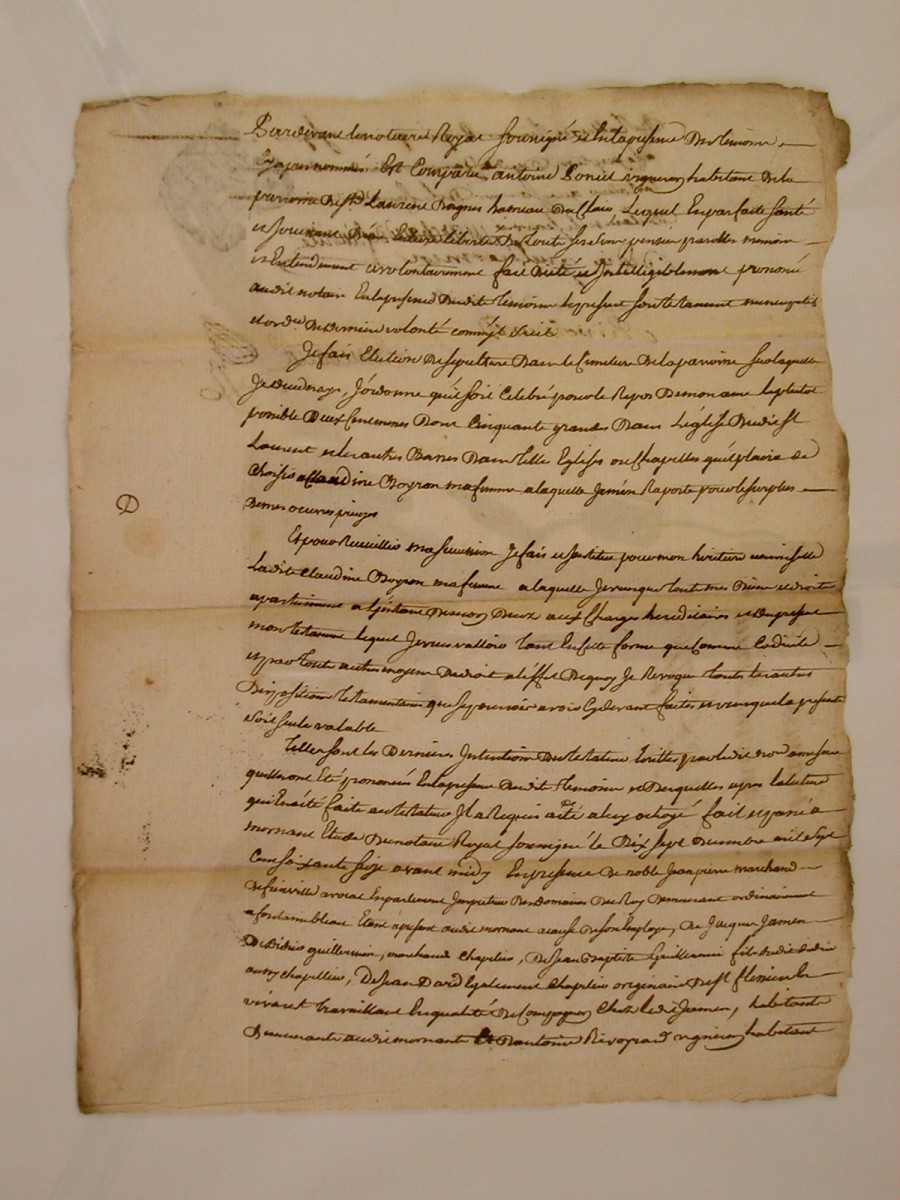 Pardevant le notaire Royal soussigné et En la presence Des temoins
Cyapres nommés Est Comparu antoine Poncet vigneron habitant De la
paroisse De St Laurent Dagny hameau Du Plain, Lequel En parfaite santé
et jouissant D'une Entiere liberté De tout ses sens pensée parolles memoire
et Entendement a volontairement fait Dicté et Intelligiblement prononcé
audit notaire En la presence Desdits temoins le present son testament nuncupatif
et ordce De Derniere volonté comm'il s'suit
Je fais Election De sepulture Dans le Cimetiere De la paroisse sur laquelle
Je Decederay, J'ordonne qu'il soit Celebré pour le Repos De mon ame le plutot
possible Deux Cent messes Dont Cinquante grandes Dans L'église Dudit St
Laurent et les autres Basses Dans telles Eglises ou Chapelles qu'il plaira de
Choisir a Claudine Boyron ma femme a laquelle Jemen Raporte pour le surplus
De mes oeuvres pieuses
Et pour Recueillir ma succession Je fais et Institue pour mon heritiere universelle
Ladite Claudine Boyron ma femme a laquelle Je veux que tout mes Biens et droits
apartiennent a l'instant De mon Deces aux Charges hereditaires et Du present
mon testament lequel Je veux valloir tant En cette forme que Comme Codicile
et par tout autre moyen De droit a l'effet De quoy Je Revoque toutes les autres
Dispositions testamentaires que Je pourrois avoir Cy devant faites et veux que la presente
soit seule valable
Telles sont les Dernieres Intentions Du testateur Ecrites par ledit notre a mesure
quelles ont Eté prononcées En la presence Desdits temoins et Desquelles apres lecture
qui En a Eté faite au testateur Il a Requis acte a luy octroyé fait et passé a
mornant Etude Du notaire Royal soussigné le Dix sept Decembre mil sept
Cent soixante seize avant midy En presence De noble Jean pierre marchand
De avocat En parlement Inspecteur Des Domaines Du Roy Demeurant ordinairement
a fontainebleau Etant a present audit mornant a cause De son Employ, De Jacques Jamen
De Didier guillermin, marchands Chapeliers, De Jean Baptiste Guillermin fils dudit didier
aussy chapellier, De Jean David Egalement Chapelier originaire De St
vivaret travaillant En qualité De Compagnon Chez ledit Jamen, habitants
Demeurants audit mornant Et D'antoine Rivoyrard vigneron habitant
D